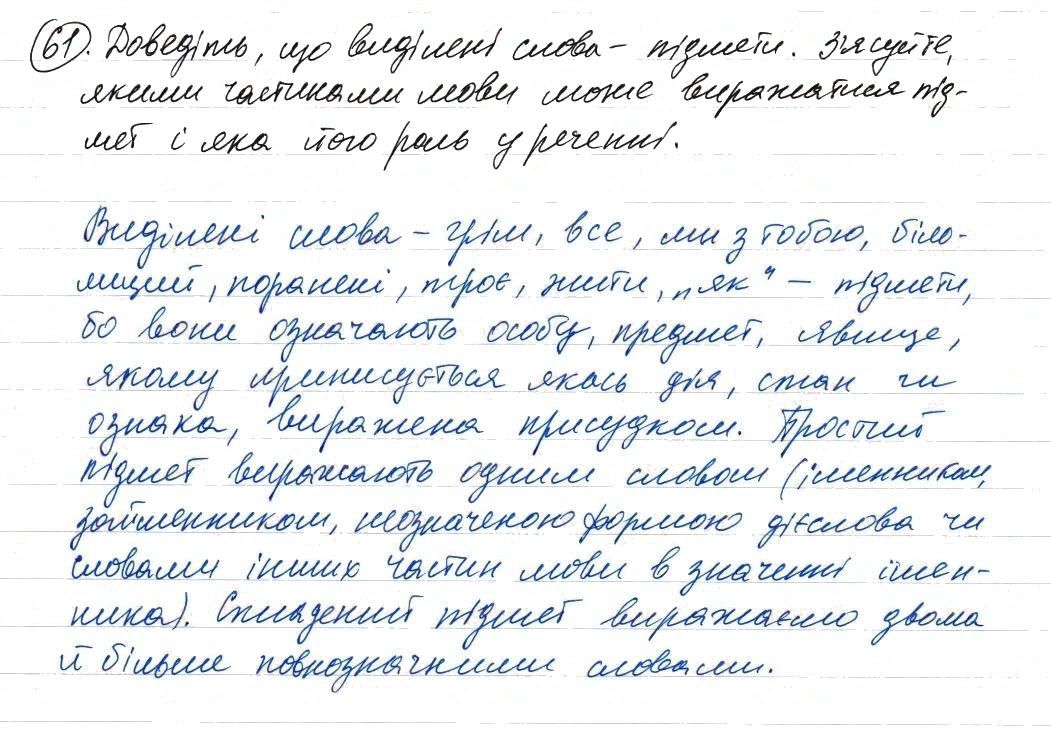 61. Доведіть, що виділені слова – підмети. З'ясуйте,
якими частинами мови може виражатися під-
мет і яка його роль у реченні.
Виділені слова – грім, все, ми з тобою, біло-
лиций, поранені, троє, жити, „як" – підмети,
бо вони означають особу, предмет, явище,
якому приписується якась дія, стан чи
ознака, виражена присудком. Простий
підмет виражають одним словом (іменником,
займенником, неозначеною формою дієслова чи
словами інших частин мови в значенні імен-
ника). Складений підмет виражаємо двома
й більше повнозначними словами.